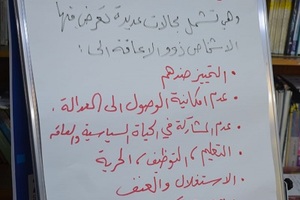 وهي تشمل مجالات عديدة تعرض فيها
الاشخاص ذوو الاعاقة الى:
• التمييز ضدهم
• عدم امكانية الوصول الى العدالة.
• عدم المشاركة في الحياة السياسية والعامة
• التعليم، التوظيف، الحرية
• الاستغلال والعنف